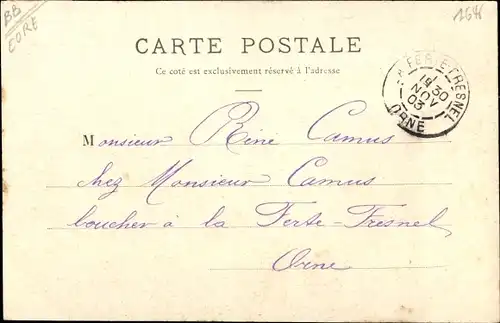 BB
EORE
1646
CARTE POSTALE
Ce coté est exclusivement réservé à l'adresse
LA FERTE-FRESNEL
19
30
NOV
03
ORNE
Monsieur Réné Camus
chez Monsieur Camus
boucher à la Ferte-Fresnel
Orne